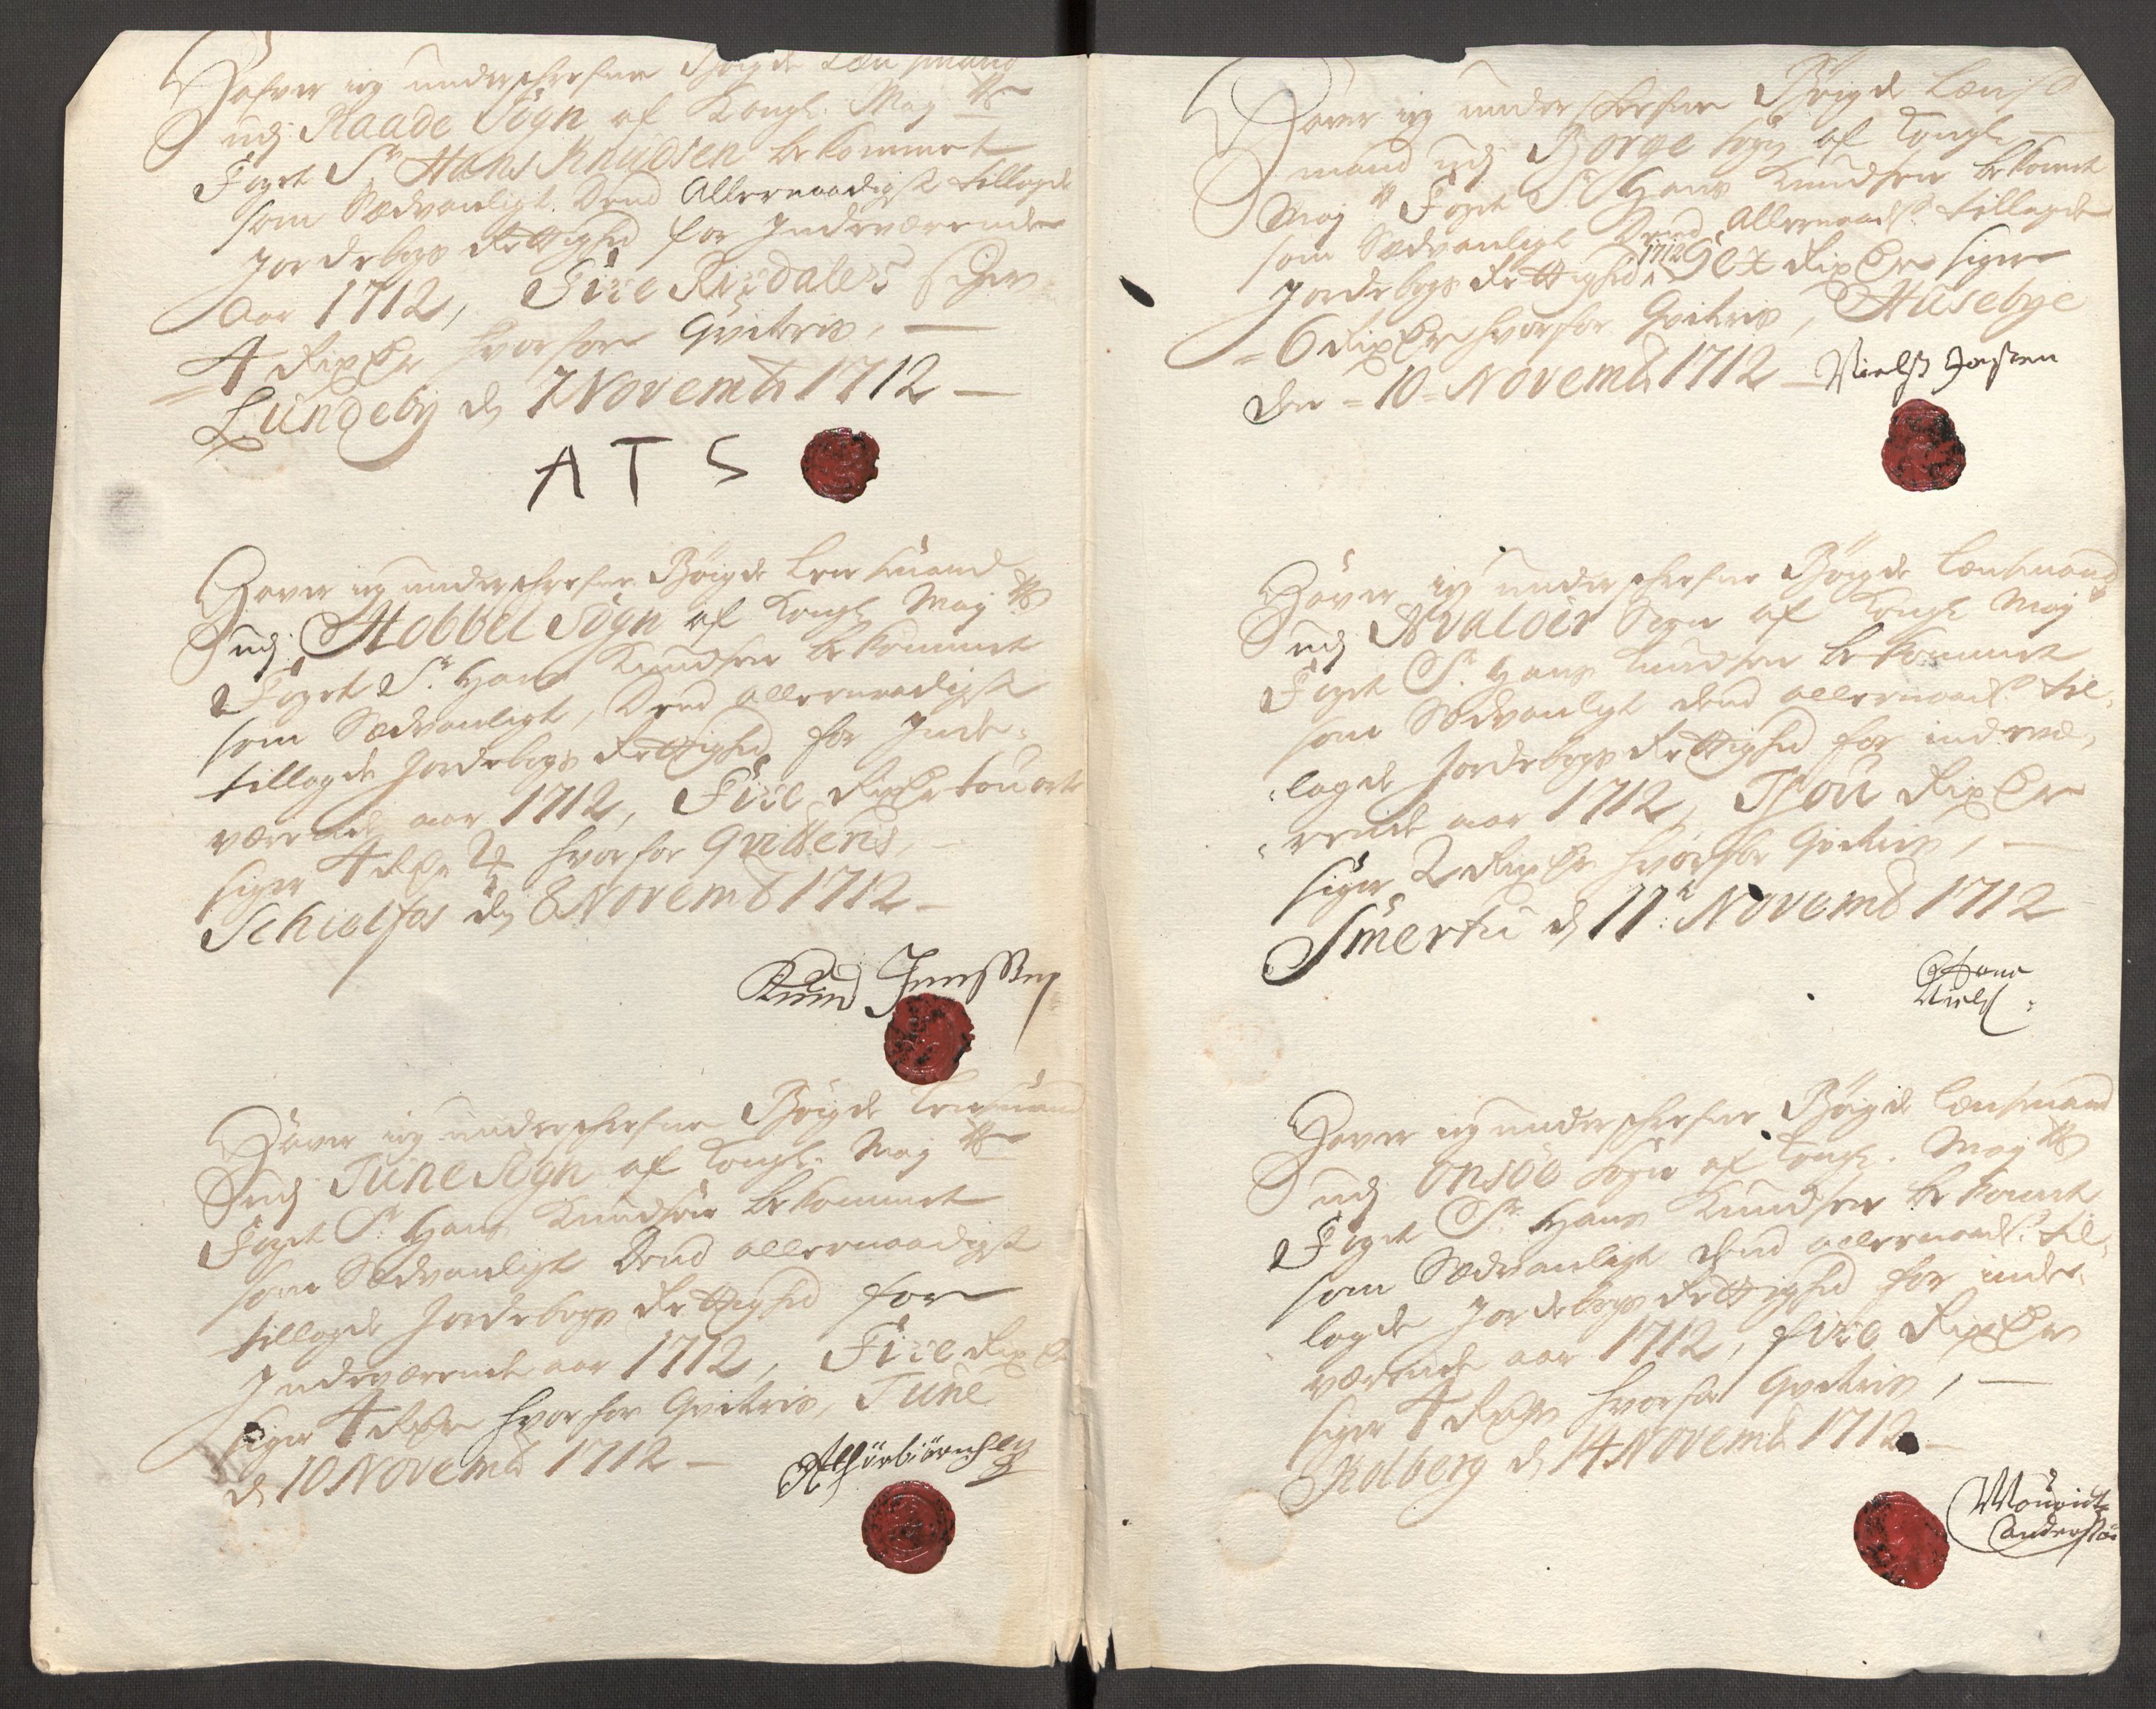 Hafver ieg underschrefne Bøigde Lensmand
udj Raade Sogn af Kongl: May:tts
Foget Sr Hans Knudsen bekommet
som Sædvanligt Dend Allernaadigst tillagde
Jordebogs Rettighed for Indeværende
Aar 1712, Fiire Rixdaler siger
4 RixDr hvorfore Qviteris,
Lundeby dj 7 Novembr 1712
A T S
Haver ieg underschrefne Bøigde Lensmand
udj Hobbel Sogn af Kongl May:tts
Foget Sr. Hans Knudsen bekommet
som Sædvanligt, Dend allernaadigst
tillagde Jordebogs Rettighed for Inde-
værende aar 1712, Fiire RixDr tou ort
siger 4 RDr 2 hvorfor Qvitteris,
Schiolfos dj 8 Novembr 1712
Knud Jenssen
Haver ieg underschrefne Bøigde Lensmand
udj Tune Sogn af Kongl. May:tts
Foget Sr. Hans Knudsen bekommet
som Sædvanligt Dend allernaadigst
tillagde Jordebogs Rettighed for
Indeværende aar 1712, Fiire RixDr
siger 4 RDr hvorfor Qviteris, Tune
d. 10 Novembr 1712
Haver ieg underschrefne Bøigde Læns-
mand udj Borge Sogn af Kongl.
May:tts Foget Sr Hans Knudsen bekomet
som Sædvanligt Dend Allernaadst. tillagde
Jordebogs Rettighed 1712 Sex RixDr siger
6 RixDr hvorfor Qviteris, Husebye
den 10 Novembr 1712 Nielss Jossen
Haver ieg underschrefne Bøigde Lensmand
udj Hvaløer Sogn af Kongl May:tts
Foget Sr. Hans Knudsen bekommet
som Sædvanligt dend allernaadst. til-
lagde Jordebogs Rettighed for indevæ-
rende aar 1712, Thou RixDr
siger 2 RixDr hvorfor Qviteris,
Smertu d 11t Novembr 1712
Niels
Haver ieg underschrefne Bøigde Lensmand
udj Onsøe Sogn af Kongl. May:tts
Foget Sr. Hans Knudsen bekomet
som Sædvanligt dend allernaadst. til-
lagde Jordebogs Rettighed for inde-
værende aar 1712, fiire RixDr
siger 4 RDr hvorfor Qviteris,
Kolberg d 14 Novembr 1712
Mouridt
Anderssøn